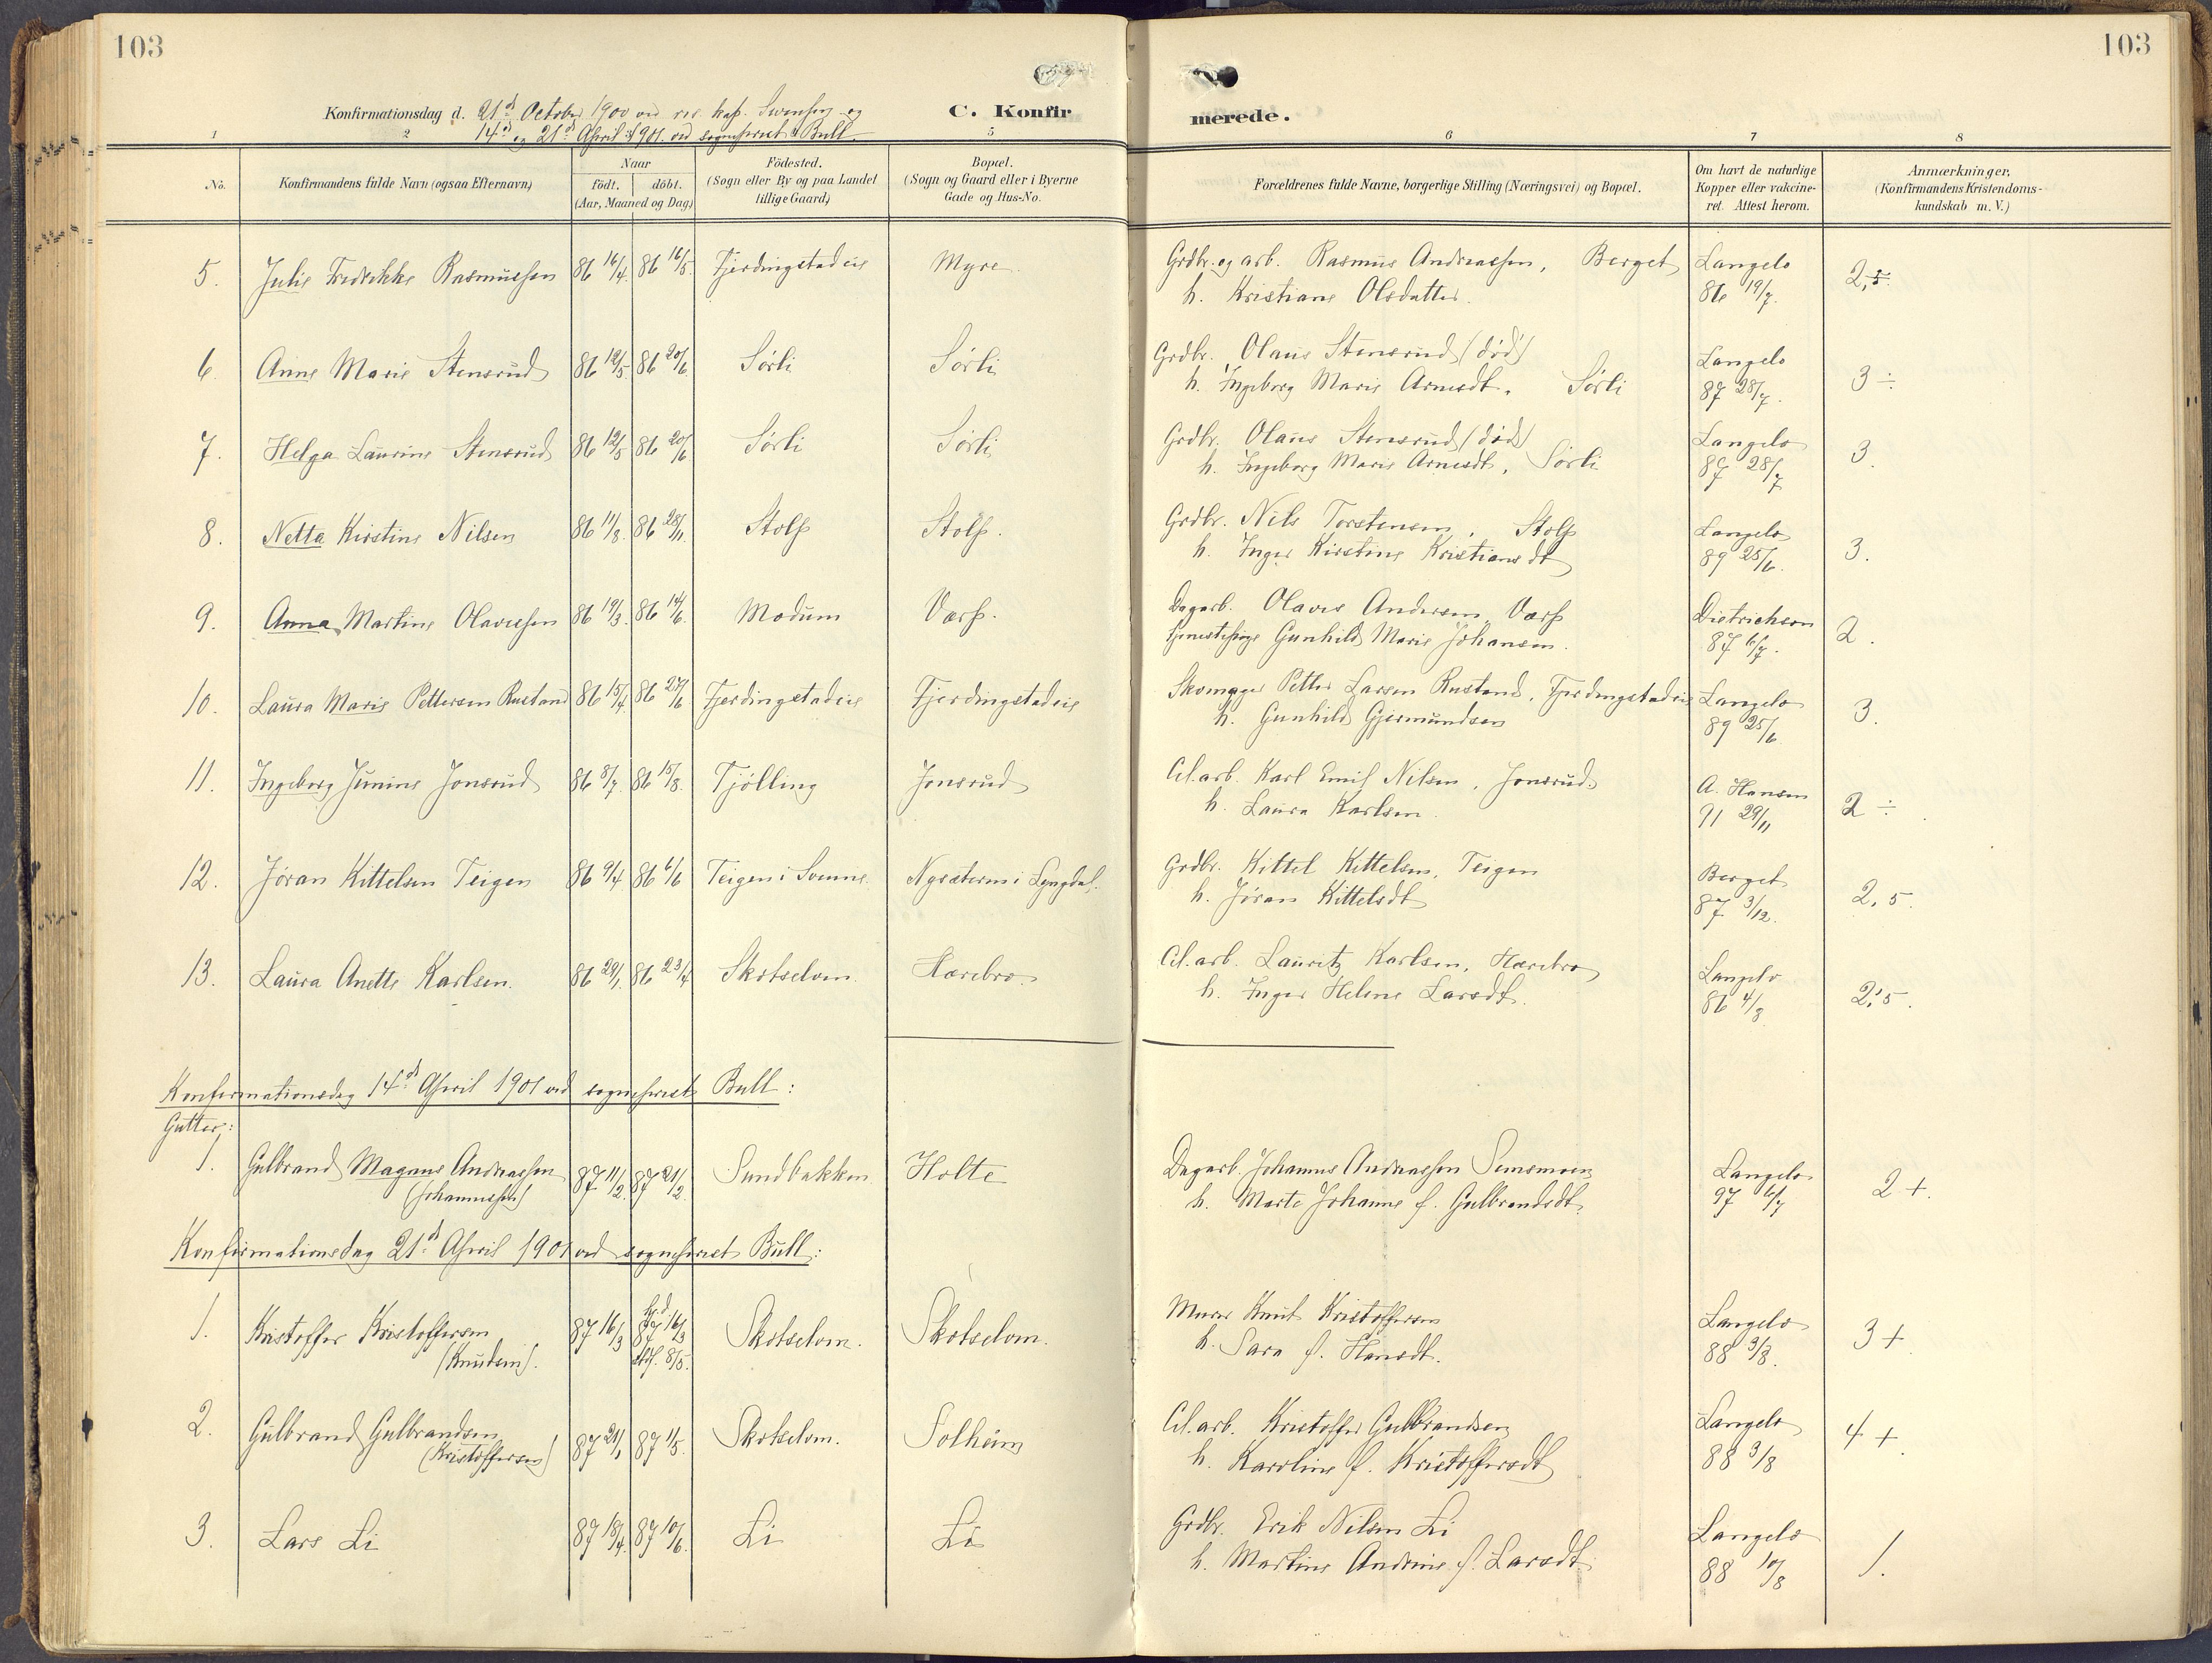 103
103
Konfirmationsdag d. 21de October 1900 ved res. kap. Svensen og
14de og 21de April 1901 ved sognepræst Bull.
C. Konfirmerede.
1 2 5 6 7 8
No.
Konfirmandens fulde Navn (ogsaa Efternavn)
Naar
födt. döbt.
(Aar, Maaned og Dag)
Födested.
(Sogn eller By og paa Landet
tillige Gaard)
Bopæl.
(Sogn og Gaard eller i Byerne
Gade og Hus-No.
Forældrenes fulde Navne, borgerlige Stilling (Næringsvei) og Bopæl.
Om havt de naturlige
Kopper eller vakcine-
ret. Attest herom.
Anmærkninger,
(Konfirmandens Kristendoms-
kundskab m. V.)
5. Julie Fredrikke Rasmussen 86 16/4. 86 16/5. Fjerdingstadeie Myre Grdbr. og arb. Rasmus Andreassen, Berget Langelo 2,5
h. Kristiane Olsdatter. 86 19/7.
6. Anne Marie Stensrud 86 12/5. 86 20/6. Sørli Sørli Grdbr. Olaus Stensrud (død) Langelo 3 ÷
h. Ingeborg Marie Arnesdt. Sørli 87 28/7.
7. Helga Laurine Stensrud 86 12/5 86 20/6. Sørli Sørli Grdbr. Olaus Stensrud (død) Langelo 3.
h. Ingeborg Marie Arnesdt. Sørli 87 28/7
8. Netta Kirstine Nilsen 86 11/8. 86 28/11. Stolp Stolp. Grdbr. Nils Torstensen, Stolp Langelo 3.
h. Inger Kirstine Kristiansdt 89 25/6.
9. Anna Martine Olavessen 86 19/3. 86 14/6. Modum Værp. Dagarb. Olaves Andersen, Værp Dietrichson 2.
Gunhild Marie Johansen. 87 6/7.
10. Laura Marie Pettersen Rustand 86 15/4. 86 27/6 Fjerdingstadeie Fjerdingstadeie Skomager Petter Larsen Rustand, Fjerdingstadeie Langelo 3.
h. Gunhild Gjermundsen 89 25/6
11. Ingeborg Junine Jonsrud 86 8/7. 86 15/8. Tjølling Jonsrud Cel.arb. Karl Emil Nilsen, Jonsrud. A. Hansen 2 ÷
h. Laura Karlsen. 91 29/11
12. Jøran Kittelsen Teigen 86 9/4 86 6/6 Teigen i Svenne Nysæteren i Lyngdal. Grdbr. Kittel Kittelsen, Teigen Berget 2,5.
h. Jøran Kittelsdt 87 3/12.
13. Laura Anette Karlsen. 86 29/1. 86 23/4 Skotselven. Hærebro. Cel.arb. Lauritz Karlsen, Hærebro Langelo 2,5.
h. Inger Helene Larsdt. 86 4/8
Konfirmationsdag 14de April 1901 ved sognepræst Bull:
Gutter:
1. Gulbrand Magnus Andreassen 87 11/2. 87 21/2. Sundbakken. Holte Dagarb. Johannes Andreassen Langelo 2 +.
(Johannessen) h. Marte Johanne f. Gulbrandsdt. 97 6/7
Konfirmationsdag 21de April 1901 ved sognepræst Bull:
1. Kristoffer Kristoffersen 87 16/3 hj.d. 87 16/3 Skotselven. Skotselven. Murer Knut Kristoffersen Langelo 3 +
(Knudsen). stdf. 8/5. h. Sara f. Hansdt. 88 3/8.
2. Gulbrand Gulbrandsen 87 21/1 87 1/5. Skotselven. Solheim Cel.arb. Kristoffer Gulbrandsen Langelo 4 +
(Kristoffersen) h. Karoline f. Kristoffersdt 88 3/8
3. Lars Li 87 18/4. 87 10/6. Li Li Grdbr. Erik Nilsen Li Langelo 1.
h. Martine Andrine f. Larsdt. 88 10/8